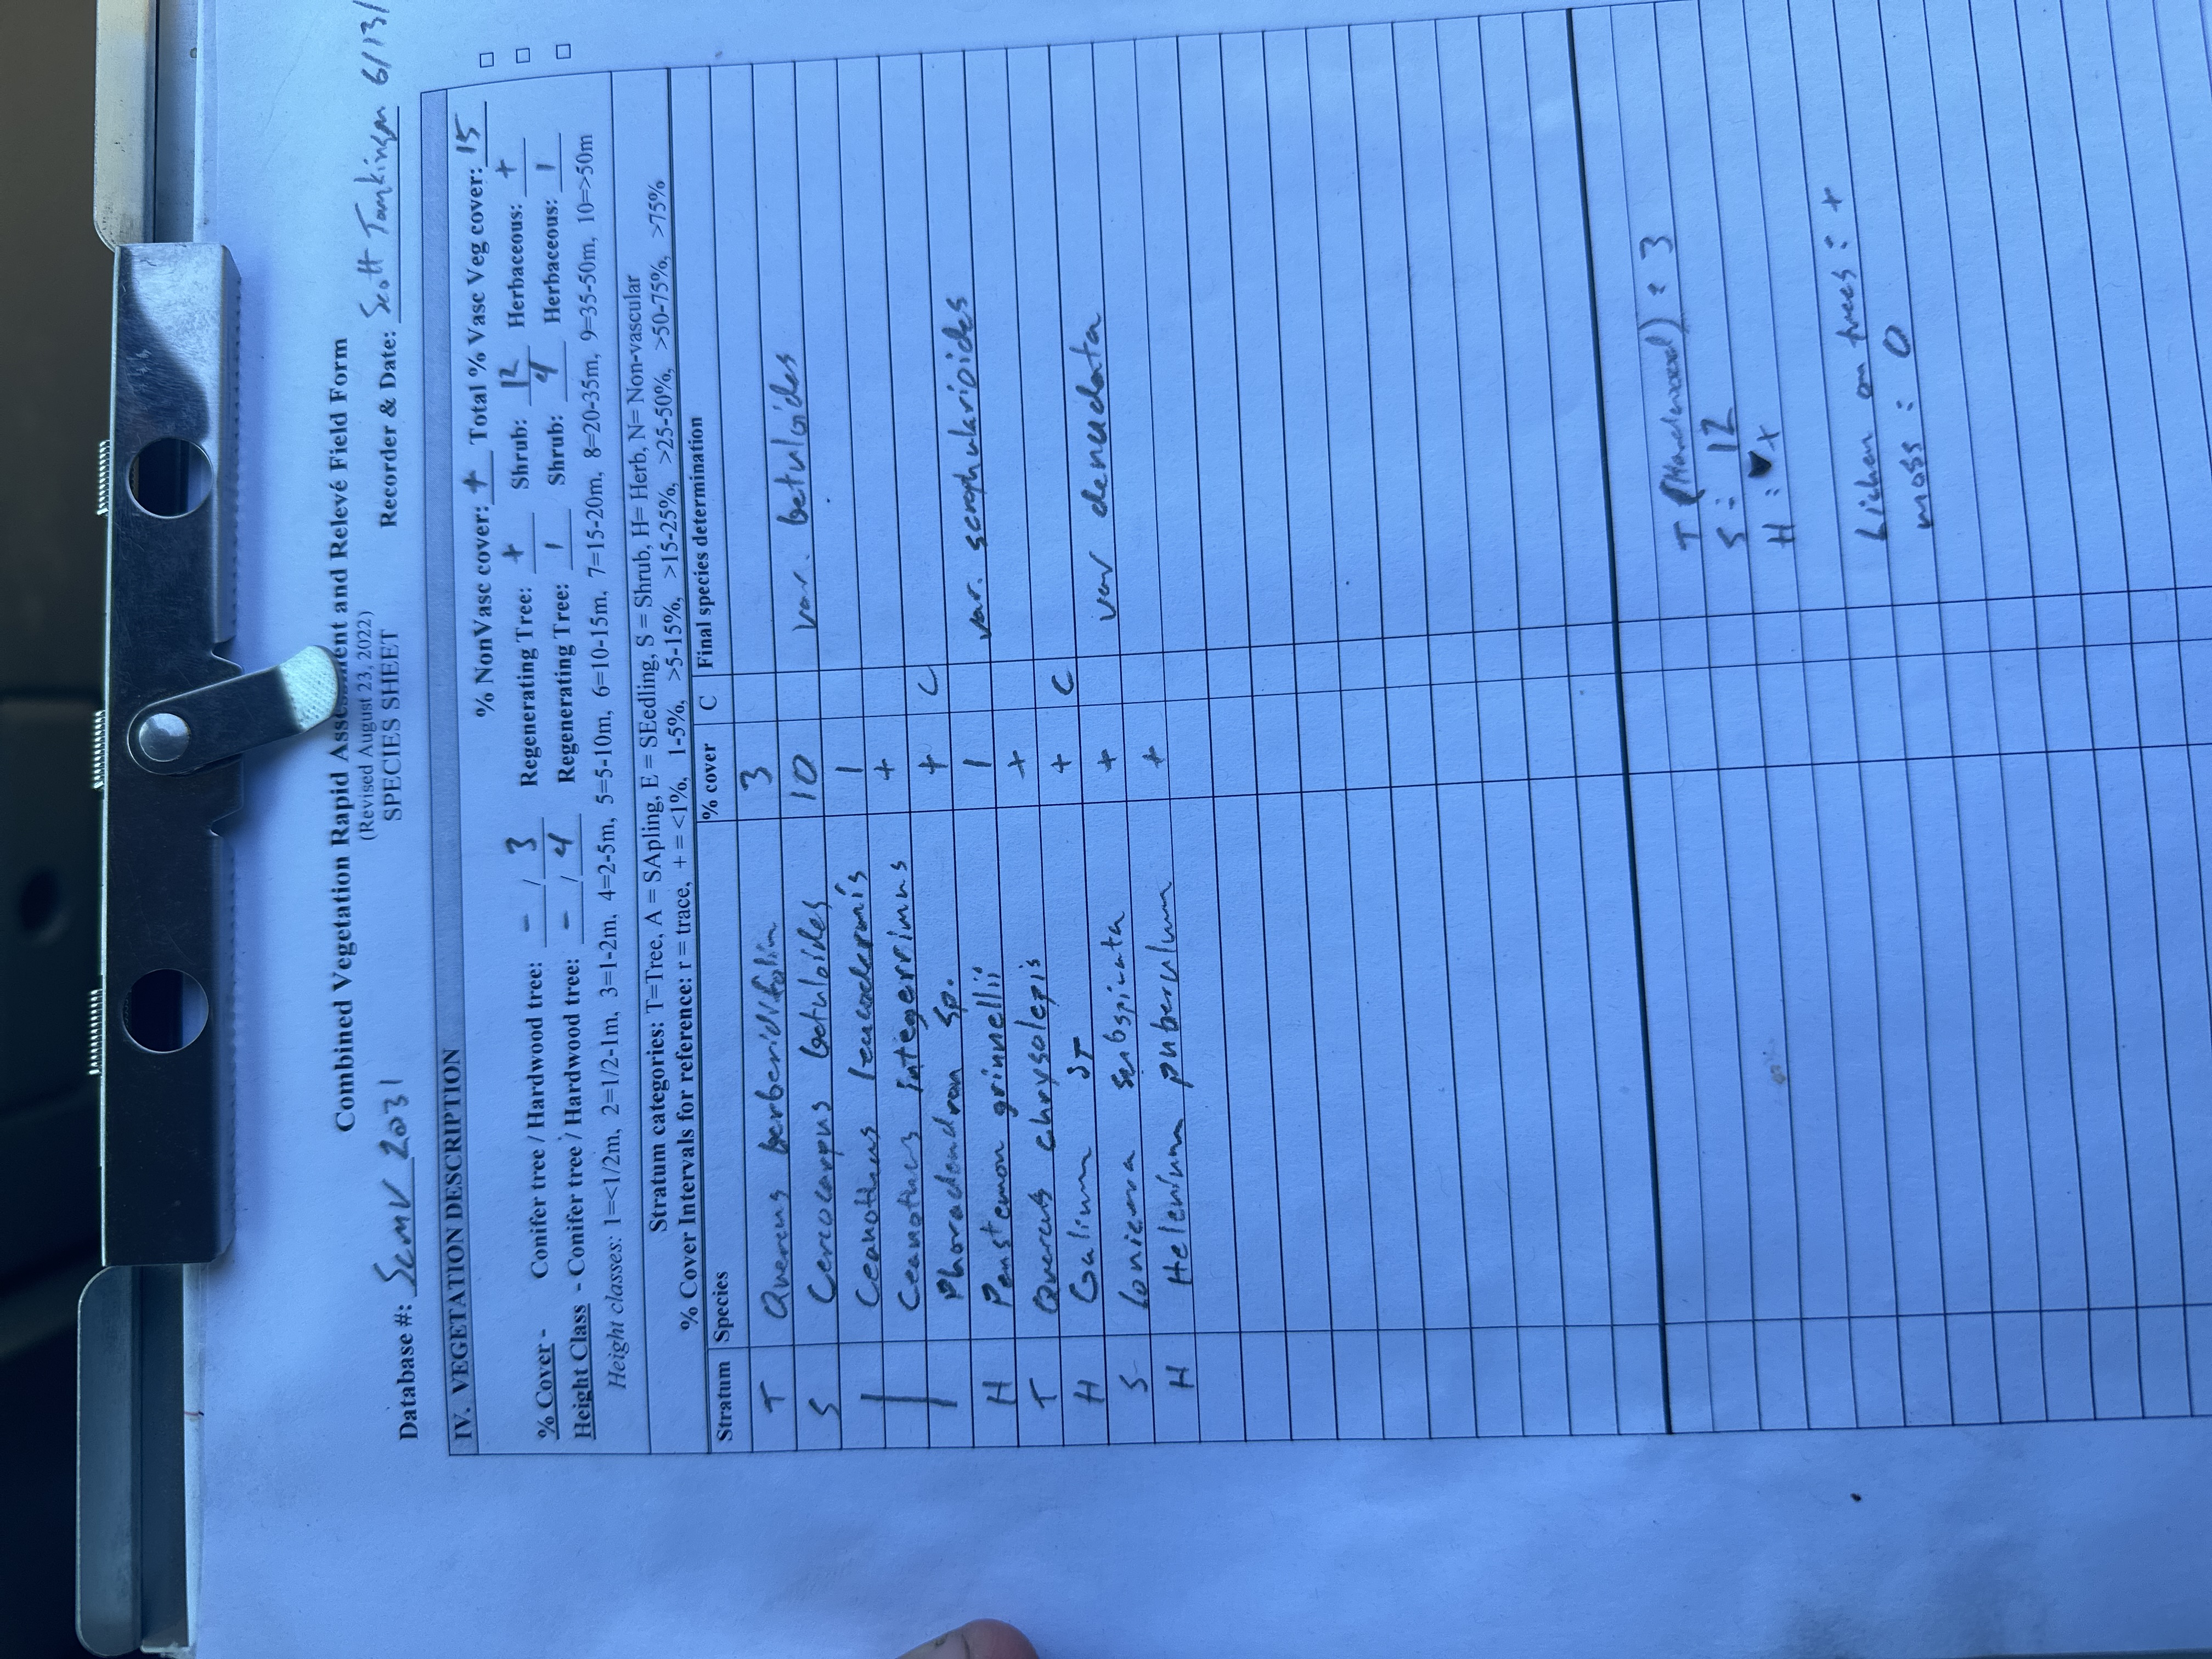 Combined Vegetation Rapid Assessment and Relevé Field Form
(Revised August 23, 2022)
SPECIES SHEET
Database #: SCMV 2031 Recorder & Date: Scott Tomkinson 6/13/
IV. VEGETATION DESCRIPTION
% NonVasc cover: + Total % Vasc Veg cover: 15
% Cover - Conifer tree / Hardwood tree: - / 3 Regenerating Tree: + Shrub: 12 Herbaceous: +
Height Class - Conifer tree / Hardwood tree: - / 4 Regenerating Tree: 1 Shrub: 4 Herbaceous: 1
Height classes: 1=<1/2m, 2=1/2-1m, 3=1-2m, 4=2-5m, 5=5-10m, 6=10-15m, 7=15-20m, 8=20-35m, 9=35-50m, 10=>50m
Stratum categories: T=Tree, A = SApling, E = SEedling, S = Shrub, H= Herb, N= Non-vascular
% Cover Intervals for reference: r = trace, + = <1%, 1-5%, >5-15%, >15-25%, >25-50%, >50-75%, >75%
Stratum Species % cover C Final species determination
T Quercus berberidifolia 3
S Cercocarpus betuloides 10 var. betuloides
Ceanothus leucodermis 1
Ceanothus integerrimus +
Phoradendron sp. + C
H Penstemon grinnellii 1 var. scrophularioides
T Quercus chrysolepis +
H Galium + C
S Lonicera subspicata + var denudata
H Helenium puberulum +
T (Hardwood) : 3
S : 12
H : +
Lichen on trees : +
moss : 0